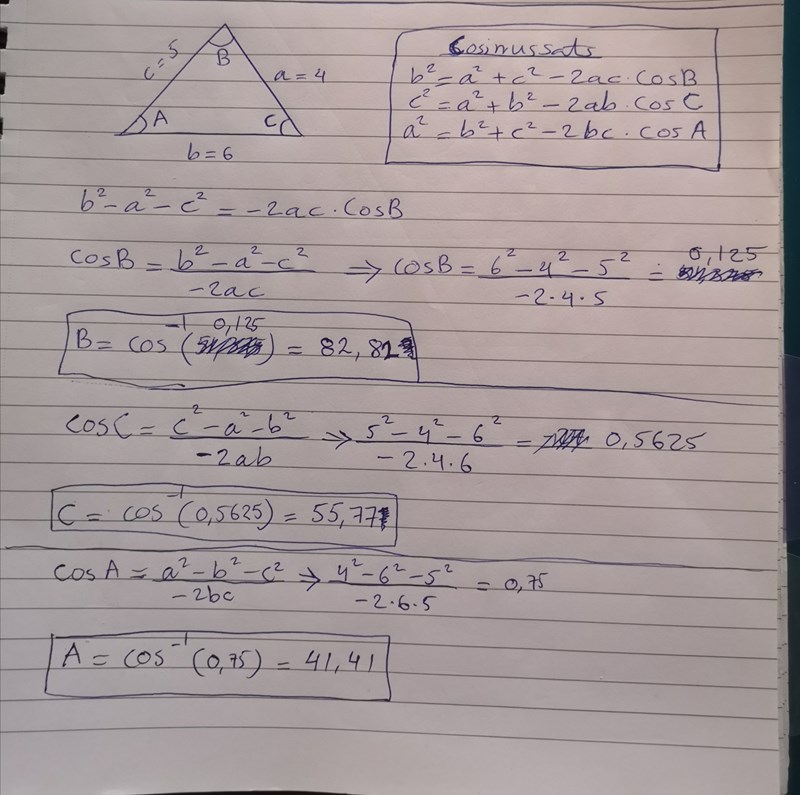 c=5
B
a=4
A
C
b=6
Cosinussats
b²=a²+c²-2ac·CosB
c²=a²+b²-2ab·CosC
a²=b²+c²-2bc·cosA
b²-a²-c²=-2ac·CosB
cosB=b²-a²-c²/-2ac ⇒ cosB=6²-4²-5²/-2·4·5=0,125
B=cos⁻¹(0,125)=82,82
cosC=c²-a²-b²/-2ab ⇒ 5²-4²-6²/-2·4·6=0,5625
C=cos⁻¹(0,5625)=55,77
cosA=a²-b²-c²/-2bc ⇒ 4²-6²-5²/-2·6·5=0,75
A=cos⁻¹(0,75)=41,41